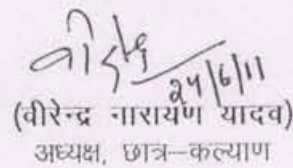 24/6/11
(वीरेन्द्र नारायण यादव)
अध्यक्ष, छात्र–कल्याण